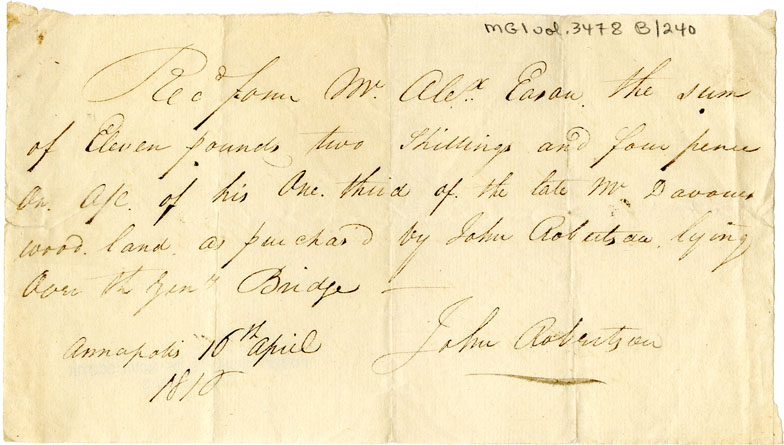 MG1 vol. 3478 B/240
Rec.d from Mr. Alex.r Easou the sum
of Eleven pounds two Shillings and four pence
On. A/c. of his One. third of the late Mr Davoues
wood. land. as purchas'd by John Robertson lying
Over the Genls Bridge —
Annapolis 16th April
1810
John Robertson